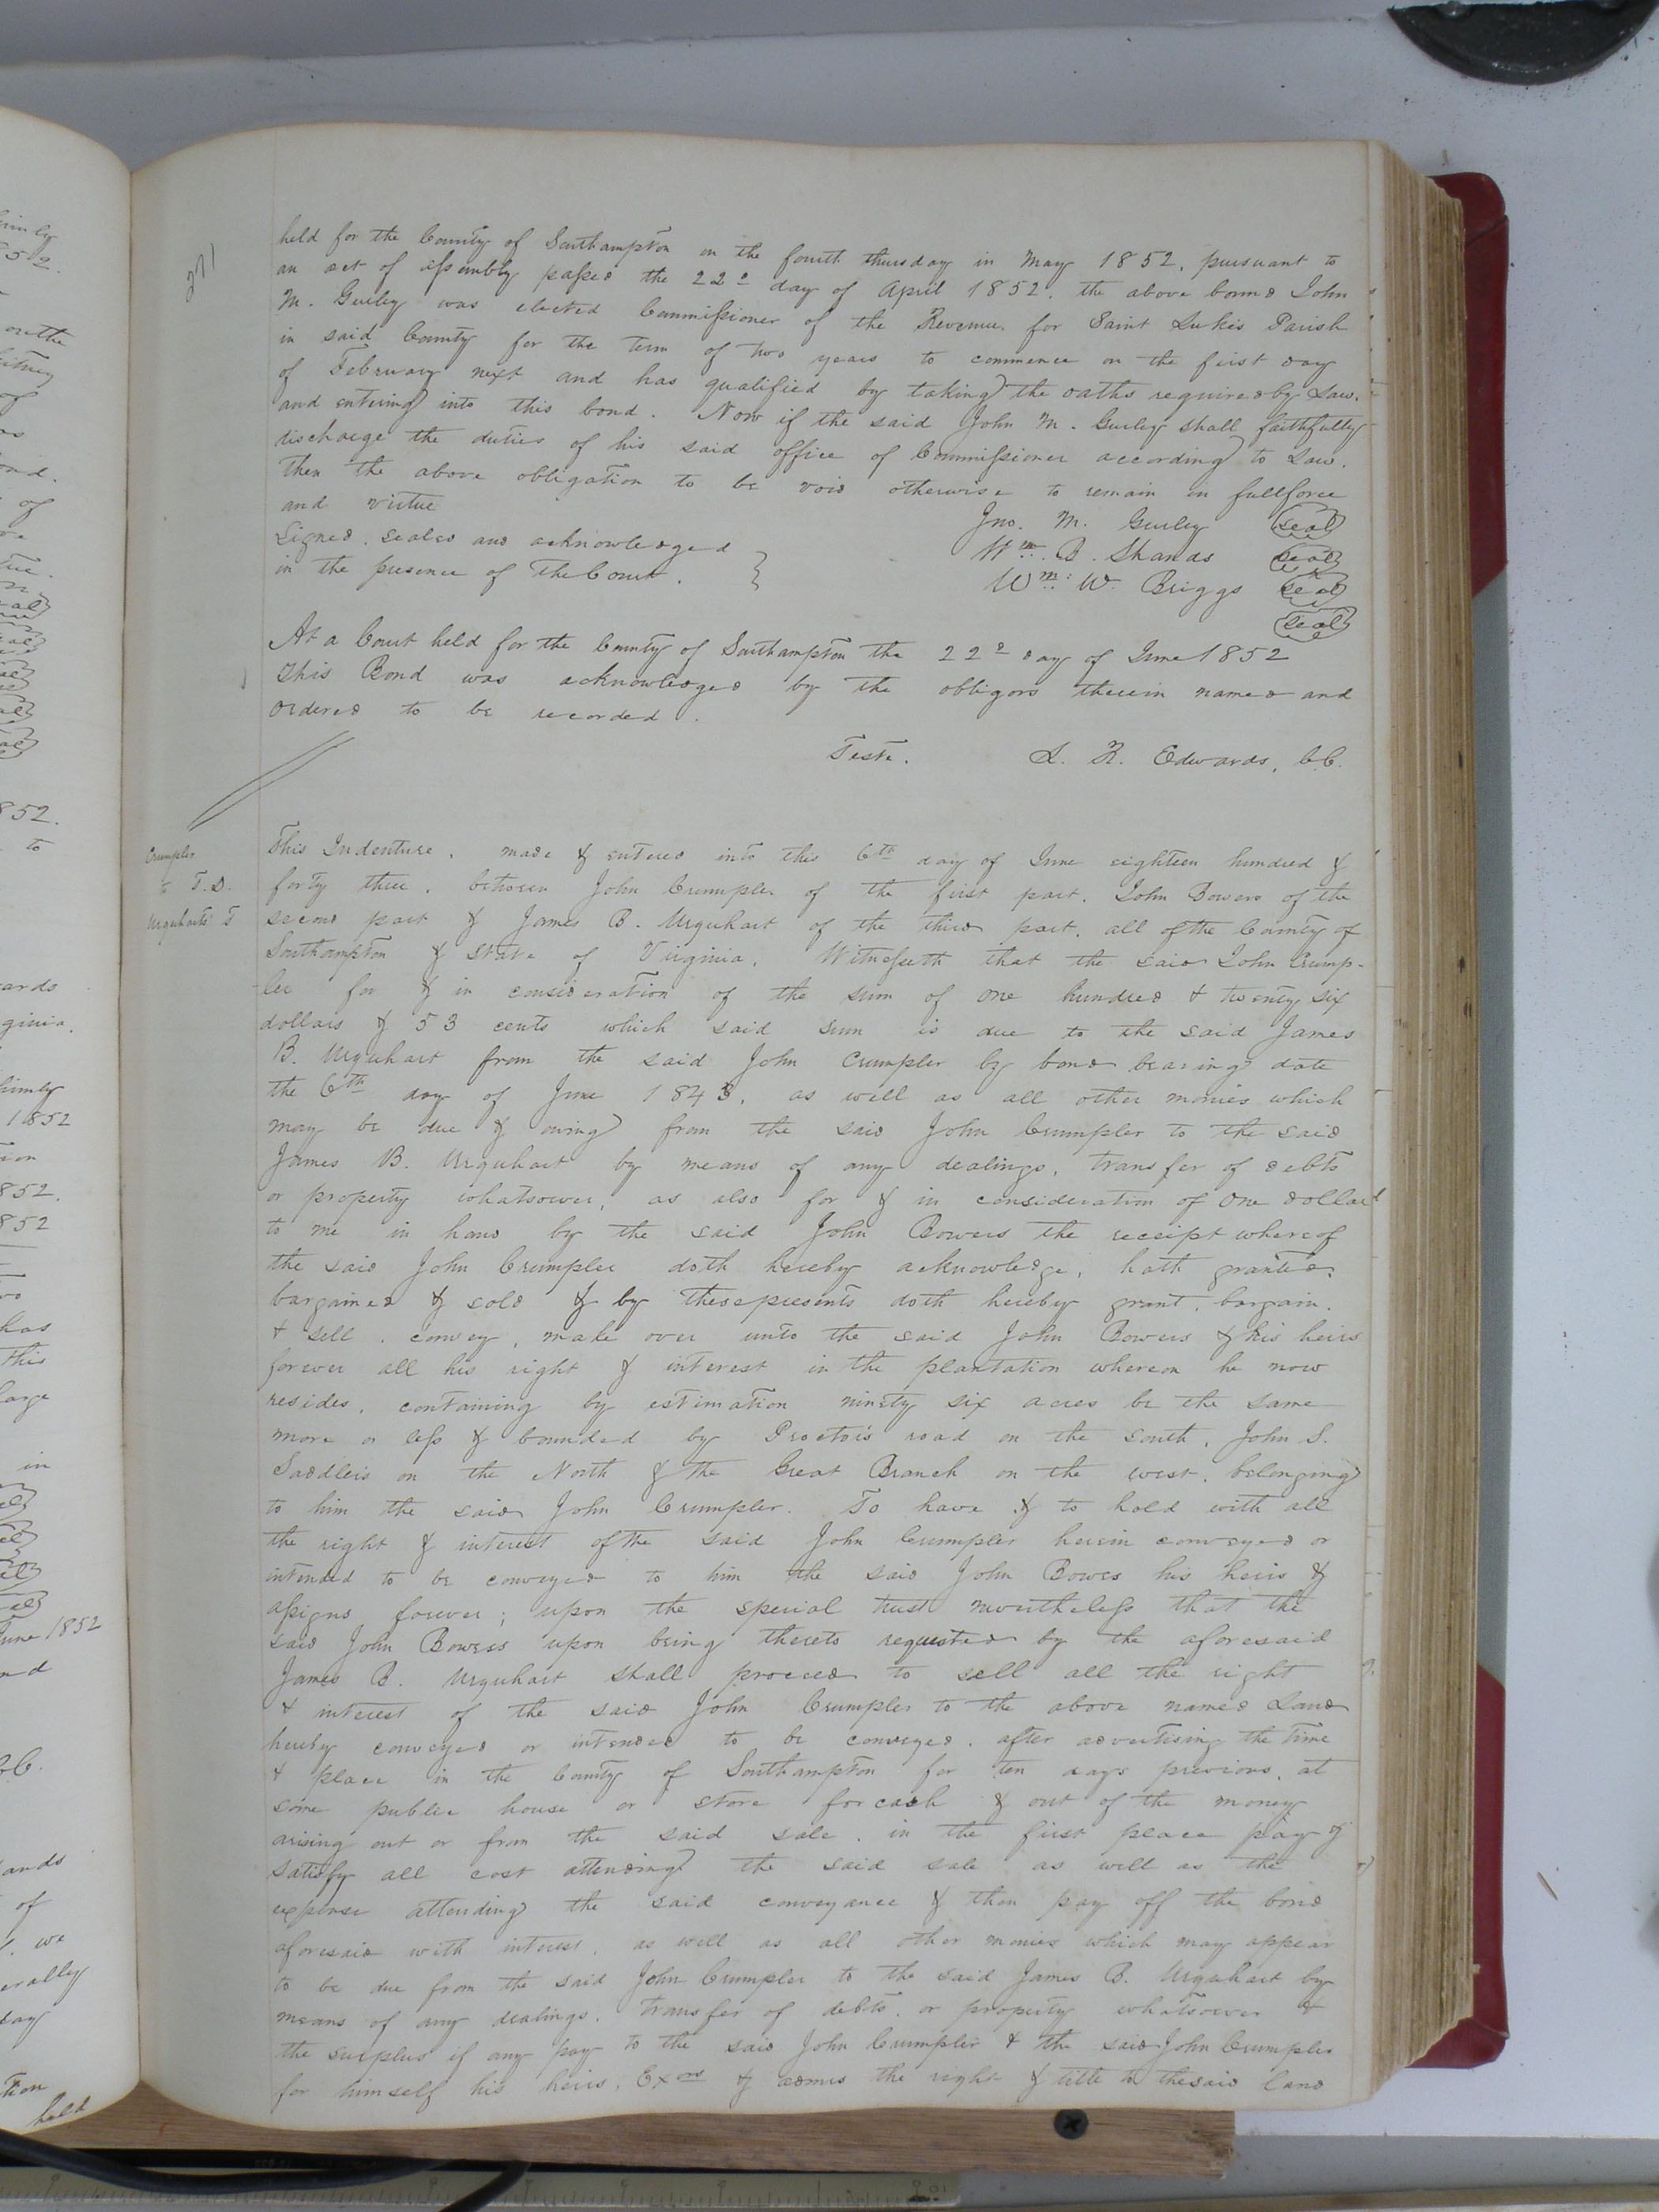 271
held for the County of Southampton on the fourth thursday in May 1852, pursuant to
an act of assembly passed the 22d day of April 1852, the above bound John
M. Gurley was elected Commissioner of the Revenue for Saint Lukes Parish
in said County for the term of two years to commence on the first day
of February next and has qualified by taking the oaths required by Law.
and entering into this bond. Now if the said John M. Gurley shall faithfully
discharge the duties of his said office of Commissioner according to Law.
Then the above obligation to be void otherwise to remain in full force
and virtue
Jno. M. Gurley seal
Signed, sealed and acknowledged
Wm. B. Shands seal
in the presence of The Court.
Wm. W. Briggs seal
seal
At a Court held for the County of Southampton the 22d day of June 1852
This Bond was acknowledged by the obligors therein named and
ordered to be recorded.
Teste. L. R. Edwards, C.C.
Crumpler
to T.D.
Urquharts T
This Indenture, made & entered into this 6th day of June eighteen hundred &
forty three, between John Crumpler of the first part, John Bowers of the
second part & James B. Urquhart of the third part, all of the County of
Southampton & State of Virginia. Witnesseth that the said John Crump-
ler for & in consideration of the sum of one hundred & twenty six
dollars & 53 cents which said sum is due to the said James
B. Urquhart from the said John Crumpler by bond bearing date
the 6th day of June 1843, as well as all other monies which
may be due & owing from the said John Crumpler to the said
James B. Urquhart by means of any dealings, transfer of debts
or property whatsoever, as also for & in consideration of one dollar
to me in hand by the said John Bowers the receipt whereof
the said John Crumpler doth hereby acknowledge, hath granted,
bargained & sold & by these presents doth hereby grant, bargain,
& sell, convey, make over unto the said John Bowers & his heirs
forever all his right & interest in the plantation whereon he now
resides, containing by estimation ninety six acres be the same
more or less & bounded by Proctors road on the South, John S.
Saddlers on the North & the Great Branch on the west, belonging
to him the said John Crumpler. To have & to hold with all
the right & interest of the said John Crumpler herein conveyed or
intended to be conveyed to him the said John Bowes his heirs &
assigns forever; upon the special trust nevertheless that the
said John Bowers upon being thereto requested by the aforesaid
James B. Urquhart shall proceed to sell all the right
& interest of the said John Crumpler to the above named Land
hereby conveyed or intended to be conveyed, after advertising the time
& place in the County of Southampton for ten days previous, at
some public house or store for cash & out of the money
arising out or from the said sale, in the first place pay &
satisfy all cost attending the said sale as well as the
expense attending the said conveyance & then pay off the bond
aforesaid with interest, as well as all other monies which may appear
to be due from the said John Crumpler to the said James B. Urquhart by
means of any dealings, transfer of debts, or property whatsoever &
the surplus if any pay to the said John Crumpler & the said John Crumpler
for himself his heirs, Exors & admrs the right & title to the said land